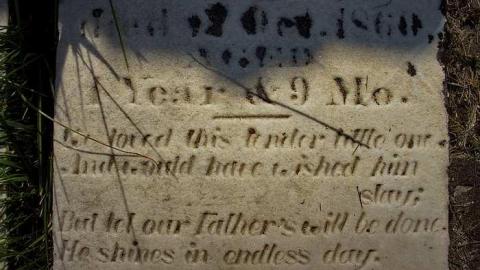 died 12 Oct. 1860,
AGED
1 Year & 9 Mo.
We loved this tender little one,
And would have wished him
stay;
But let our Father's will be done.
He shines in endless day.